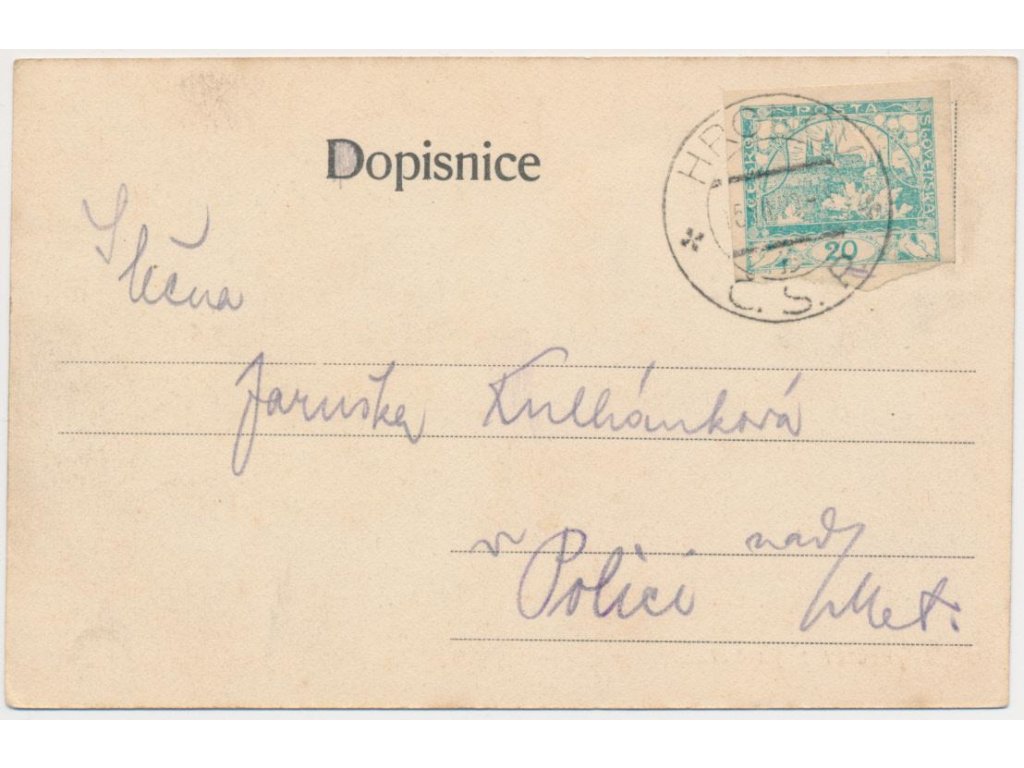 Dopisnice
ČESKO
POŠTA
SLOVENSKÁ
20
Č. S. R.
Slečna
Jaruška Kulhánková
v Polici nad Met.